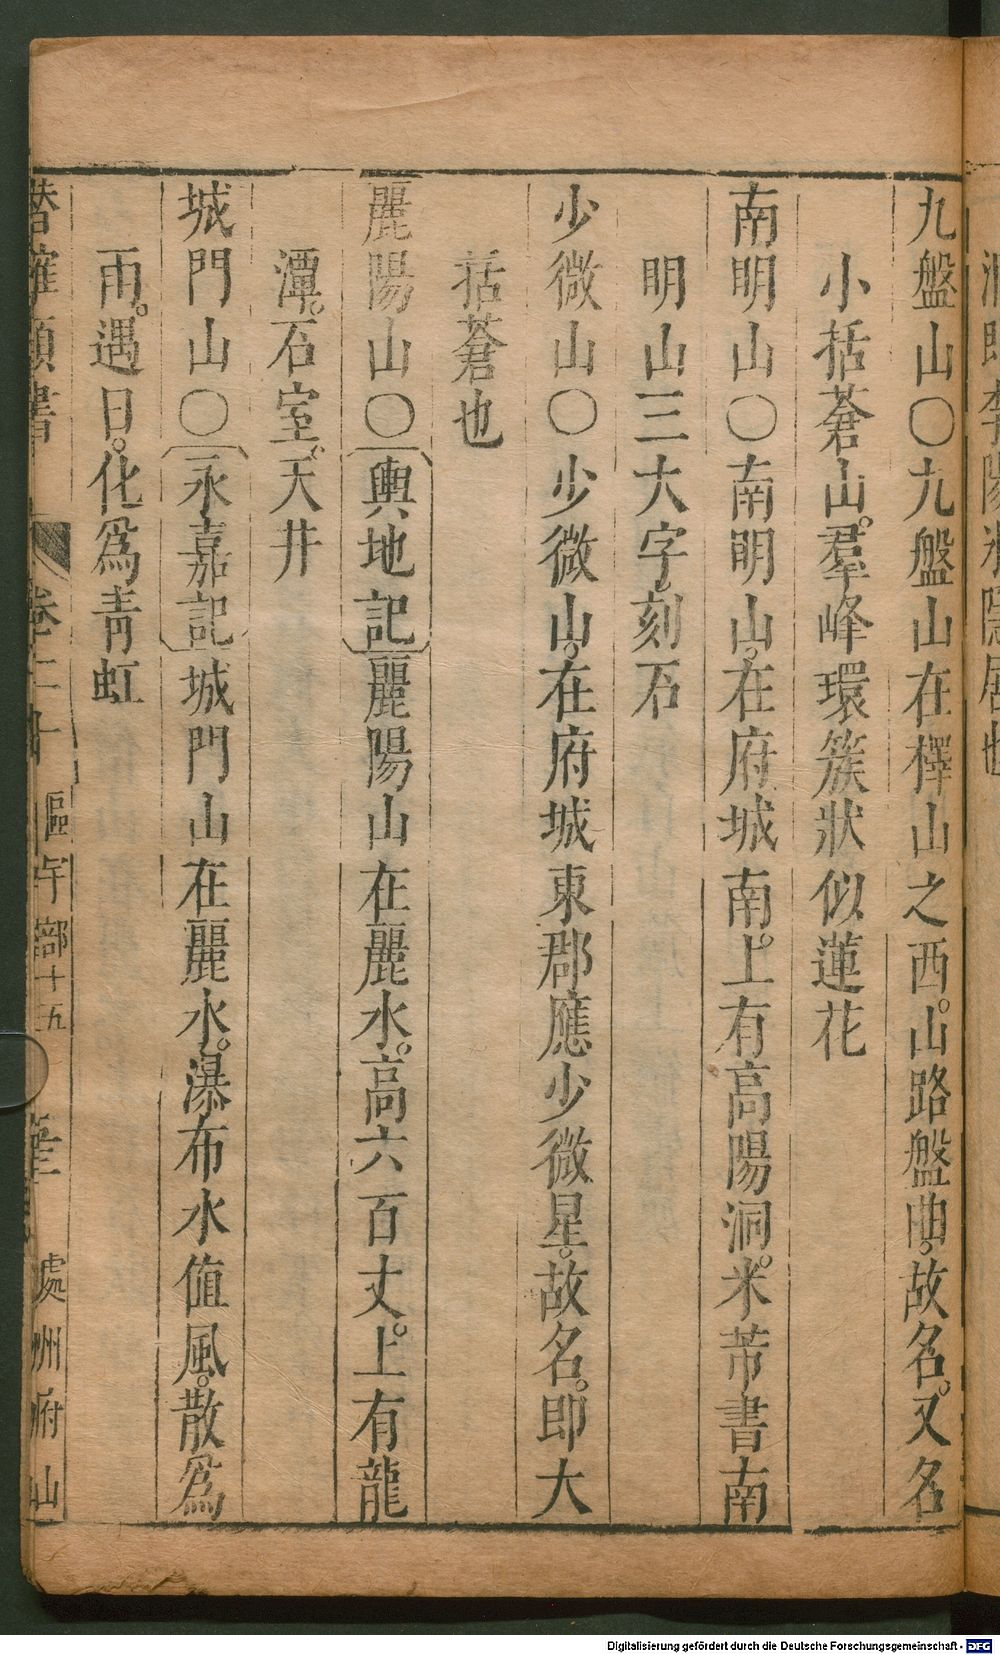 九盤山○九盤山在檡山之西。山路盤曲。故名。又名
小括蒼山。羣峰環簇狀似蓮花
南明山○南明山。在府城南。上有高陽洞。米芾書南
明山三大字刻石
少微山○少微山。在府城東郡應少微星。故名。即大
括蒼也
麗陽山○輿地記麗陽山在麗水。高六百丈。上有龍
潭。石室。天井
城門山○永嘉記城門山在麗水。瀑布水值風。散爲
雨。遇日。化爲靑虹
潛確類書 卷二十 區宇部十五 處州府山
Digitalisierung gefördert durch die Deutsche Forschungsgemeinschaft - DFG